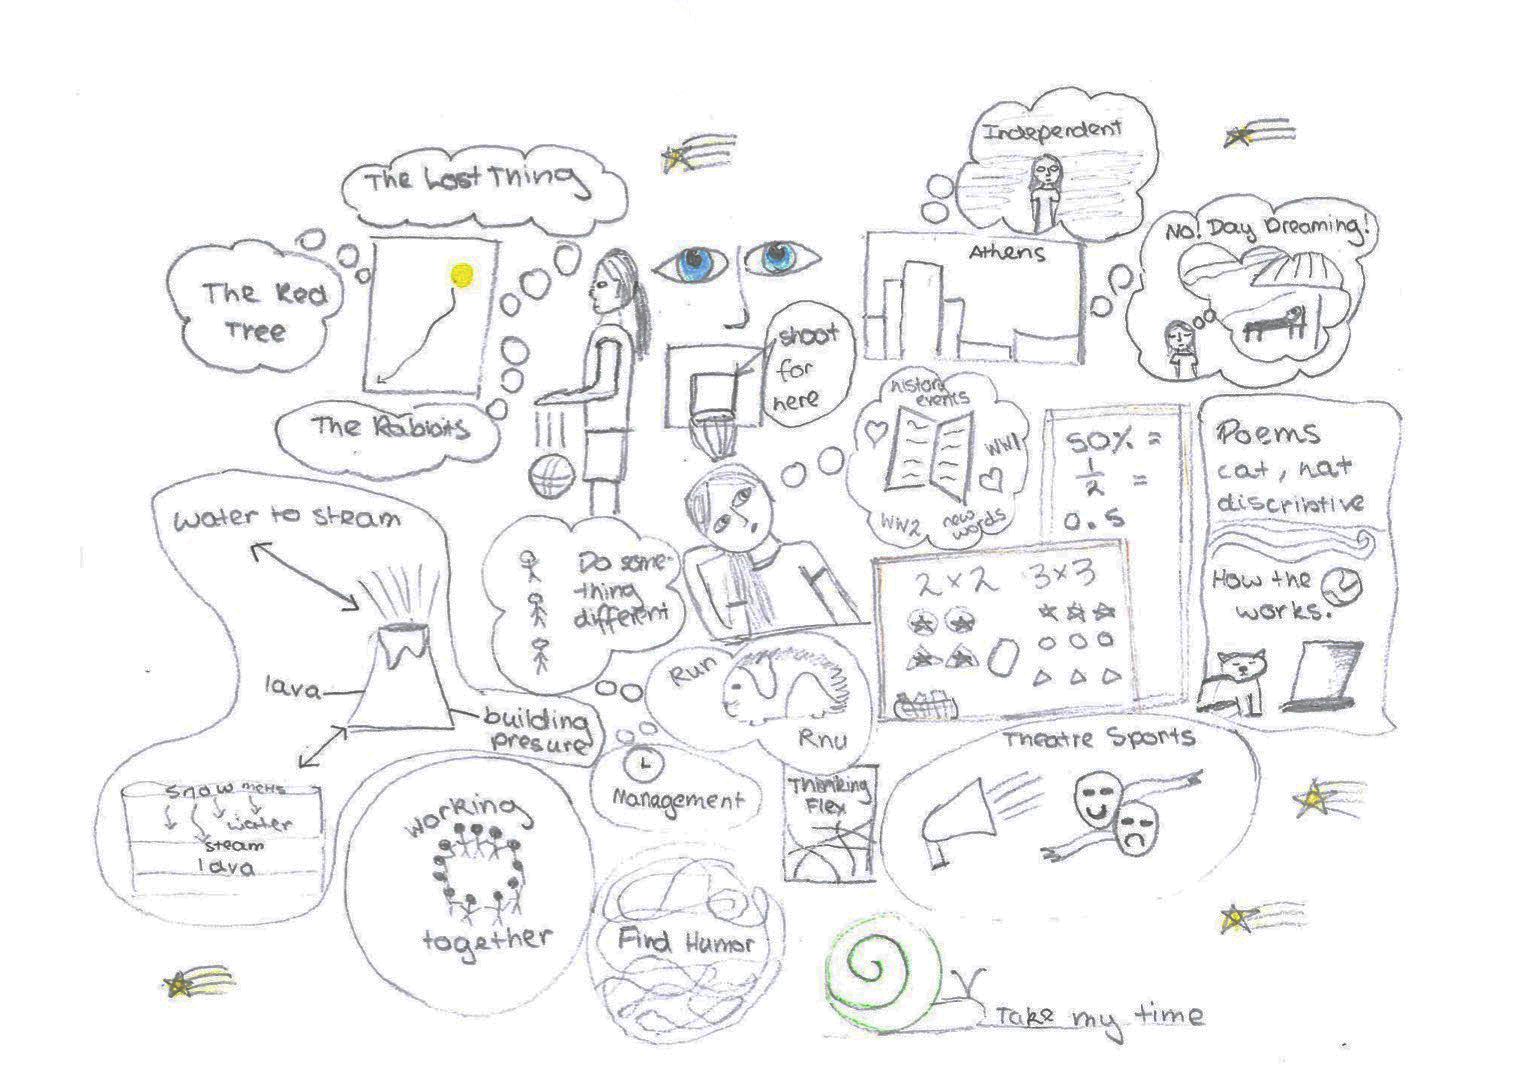 The Lost Thing
The Red
Tree
The Rabbits
Independent
No! Day Dreaming!
Athens
shoot
for
here
history
events
WW1
WW2
new
words
50% =
1
2 =
0.5
Poems
cat, nat
discribtive
How the
works.
2 x 2 3 x 3
water to steam
lava
building
presure
snow melts
water
steam
lava
Do some-
thing
different
Run
Rnu
Management
Thinking
Flex
Theatre Sports
working
together
Find Humor
Take my time